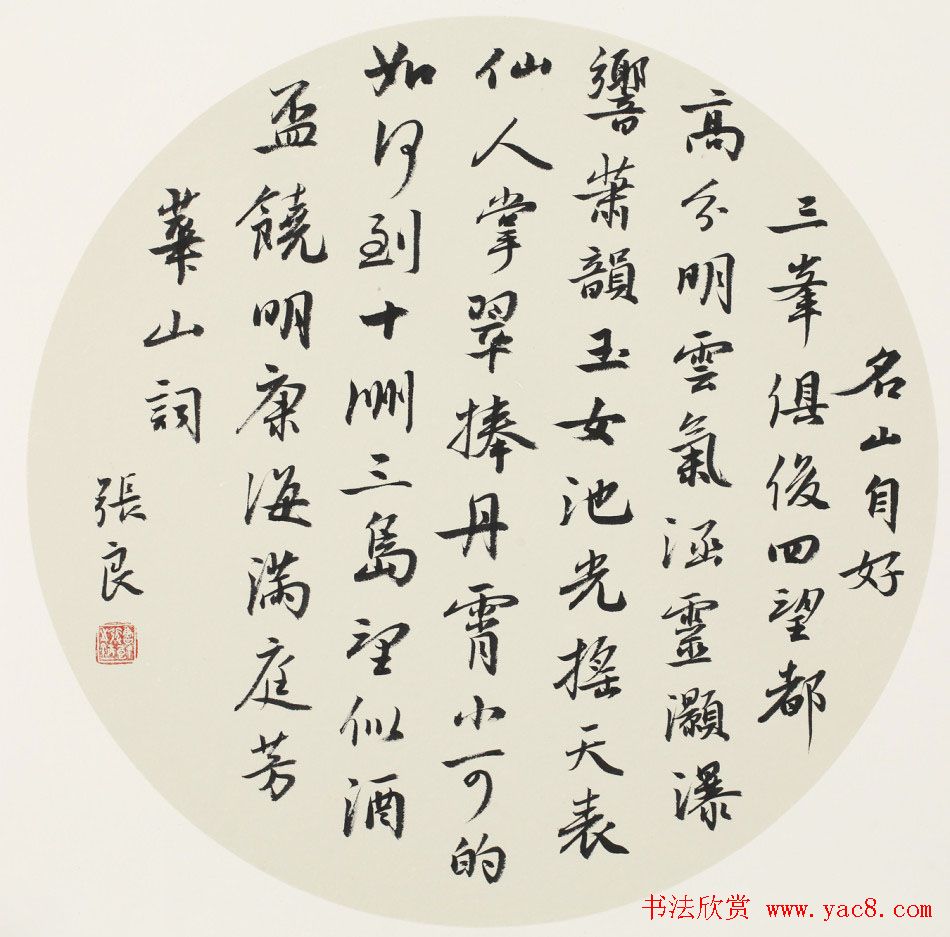 名山自好
三峯俱俊四望都
高分明雲氣涵靈灝瀑
響蕭韻玉女池光搖天表
仙人掌翠捧丹霄小可的
如何到十洲三島望似酒
盃饒明康海滿庭芳
華山詞
張良
书法欣赏 www.yac8.com